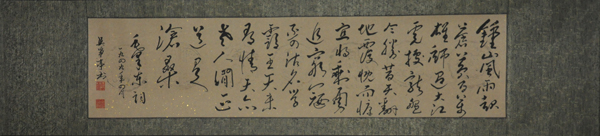 鍾山風雨起
蒼黃百萬
雄師過大江
虎踞龍盤
今勝昔天翻
地覆慨而慷
宜將剩勇
追窮寇
不可沽名學
霸王天若
有情天亦
老人間正
道是
滄桑
毛澤東詞